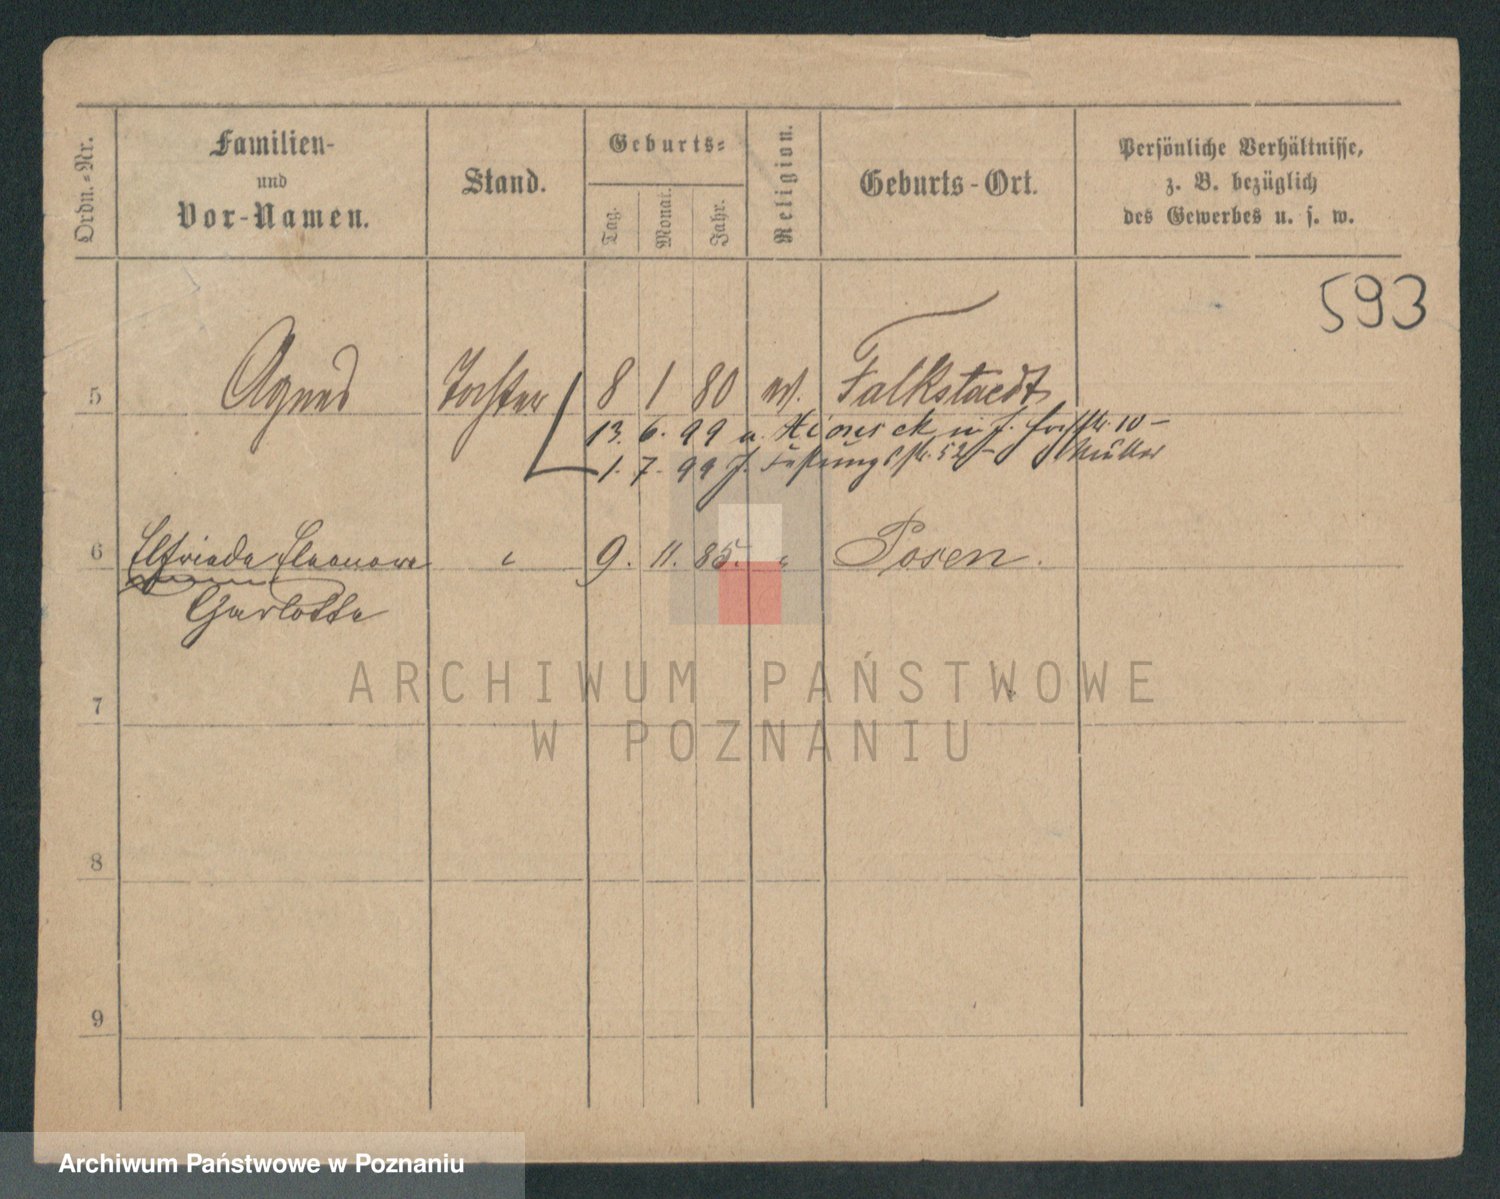 Ordn.-Nr. Familien- und Vor-Namen. Stand. Geburts- Tag. Monat. Jahr. Religion. Geburts-Ort. Persönliche Verhältnisse, z. B. bezüglich des Gewerbes u. s. w.
593
5 Agnes Tochter 8 1 80 ev. Falkstaedt
13. 6. 99 a. 10 –
1. 7. 99 J. Festungsstr. 52 – Müller
6 Elfriede Eleonore " 9. 11. 85. " Posen.
Charlotte
7
8
9
ARCHIWUM PAŃSTWOWE
W POZNANIU
Archiwum Państwowe w Poznaniu